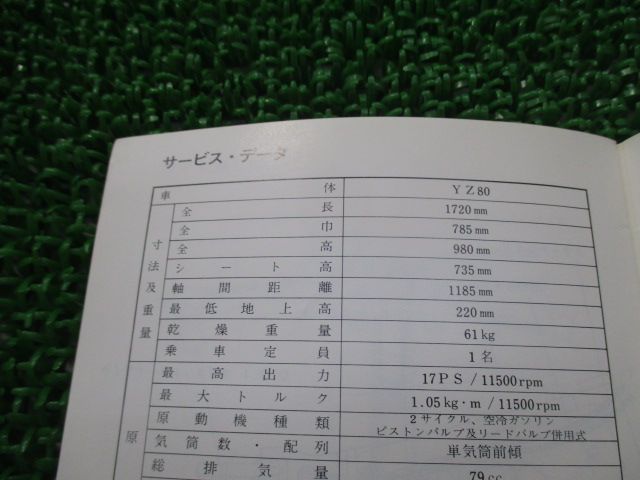 サービス・データ
車体 YZ80
寸法及重量
全長 1720mm
全巾 785mm
全高 980mm
シート高 735mm
軸間距離 1185mm
最低地上高 220mm
乾燥重量 61kg
乗車定員 1名
原
最高出力 17PS/11500rpm
最大トルク 1.05kg・m/11500rpm
原動機種類 2サイクル、空冷ガソリン
ピストンバルブ及リードバルブ併用式
気筒数・配列 単気筒前傾
総排気量 79cc